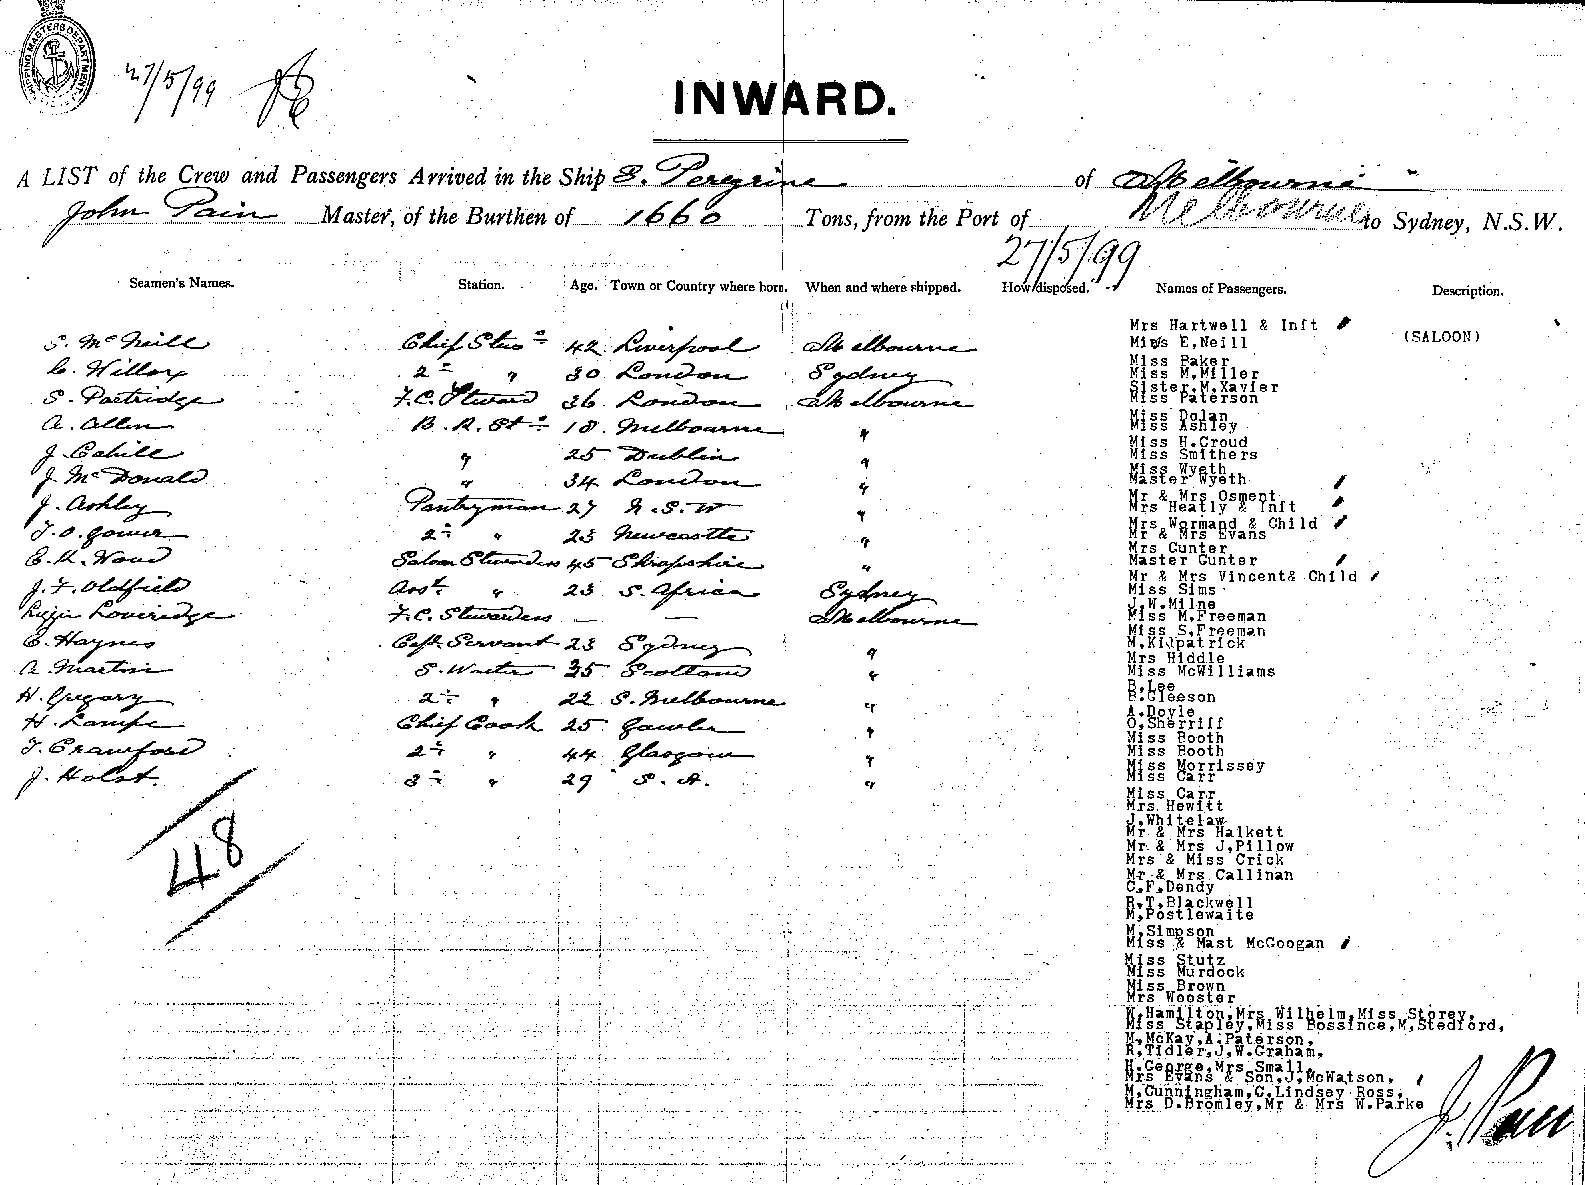 SHIPPING MASTERS DEPARTMENT
27/5/99
INWARD.
A LIST of the Crew and Passengers Arrived in the Ship S. Peregrine of Melbourne
John Pain Master, of the Burthen of 1660 Tons, from the Port of Melbourne to Sydney, N.S.W.
27/5/99
Seamen's Names. Station. Age. Town or Country where born. When and where shipped. How disposed. Names of Passengers. Description.
S. McNeill Chief Stewd 42 Liverpool Melbourne
C. Willox 2nd " 30 London Sydney
S. Partridge F.C. Steward 36 London Melbourne
A. Allen B. R. St 18 Melbourne "
J. Cahill " 25 Dublin "
J. McDonald " 34 London "
J. Ashley Pantryman 27 N.S.W "
T. O. Gower 2nd " 23 Newcastle "
E. M. Wood Saloon Stewardess 45 Shropshire "
J. F. Oldfield Asst. " 23 S. Africa Sydney
Lizzie Loveridge F.C. Stewardess — — Melbourne
E. Haynes Capt. Servant 23 Sydney "
A. Martin S. Waiter 35 Scotland "
H. Gregory 2nd " 22 S. Melbourne "
H. Lampe Chief Cook 25 Gawler "
T. Crawford 2nd " 44 Glasgow "
J. Holst. 3rd " 29 S. A. "
48
Mrs Hartwell & Inft
(SALOON)
Miss E,Neill
Miss Baker
Miss M,Miller
Sister,M,Xavier
Miss Paterson
Miss Dolan
Miss Ashley
Miss H.Croud
Miss Smithers
Miss Wyeth
Master Wyeth
Mr & Mrs Osment
Mrs Heatly & Inft
Mrs Wormand & Child
Mr & Mrs Evans
Mrs Gunter
Master Gunter
Mr & Mrs Vincent& Child
Miss Sims
J,W,Milne
Miss M,Freeman
Miss S,Freeman
M,Kilpatrick
Mrs Hiddle
Miss McWilliams
B,Lee
P.Gleeson
A,Doyle
O,Sherriff
Miss Booth
Miss Booth
Miss Morrissey
Miss Carr
Miss Carr
Mrs Hewitt
J,Whitelaw
Mr & Mrs Halkett
Mr & Mrs J,Pillow
Mrs & Miss Crick
Mr & Mrs Callinan
C,F,Dendy
R,T,Blackwell
M,Postlewaite
M,Simpson
Miss & Mast McGoogan
Miss Stutz
Miss Murdock
Miss Brown
Mrs Wooster
W,Hamilton,Mrs Wilhelm,Miss Storey,
Miss Stapley,Miss Bossince,M,Stedford,
M,McKay,A,Paterson,
R,Tidler,J,W.Graham,
H.George,Mrs Small,
Mrs Evans & Son,J,McWatson,
M,Cunningham,C,Lindsey Ross,
Mrs D.Bromley,Mr & Mrs W.Parke
J. Pain